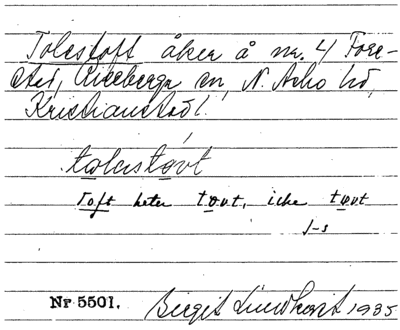 Tolestoft åker å nr. 4 Fore-
stad, Kviebergs sn, N. Åsbo hd,
Kristianstads l.
tolastóvt
Toft heter tovt, icke tωvt
J-s
Nr 5501. Birgit Lundkvist 1935